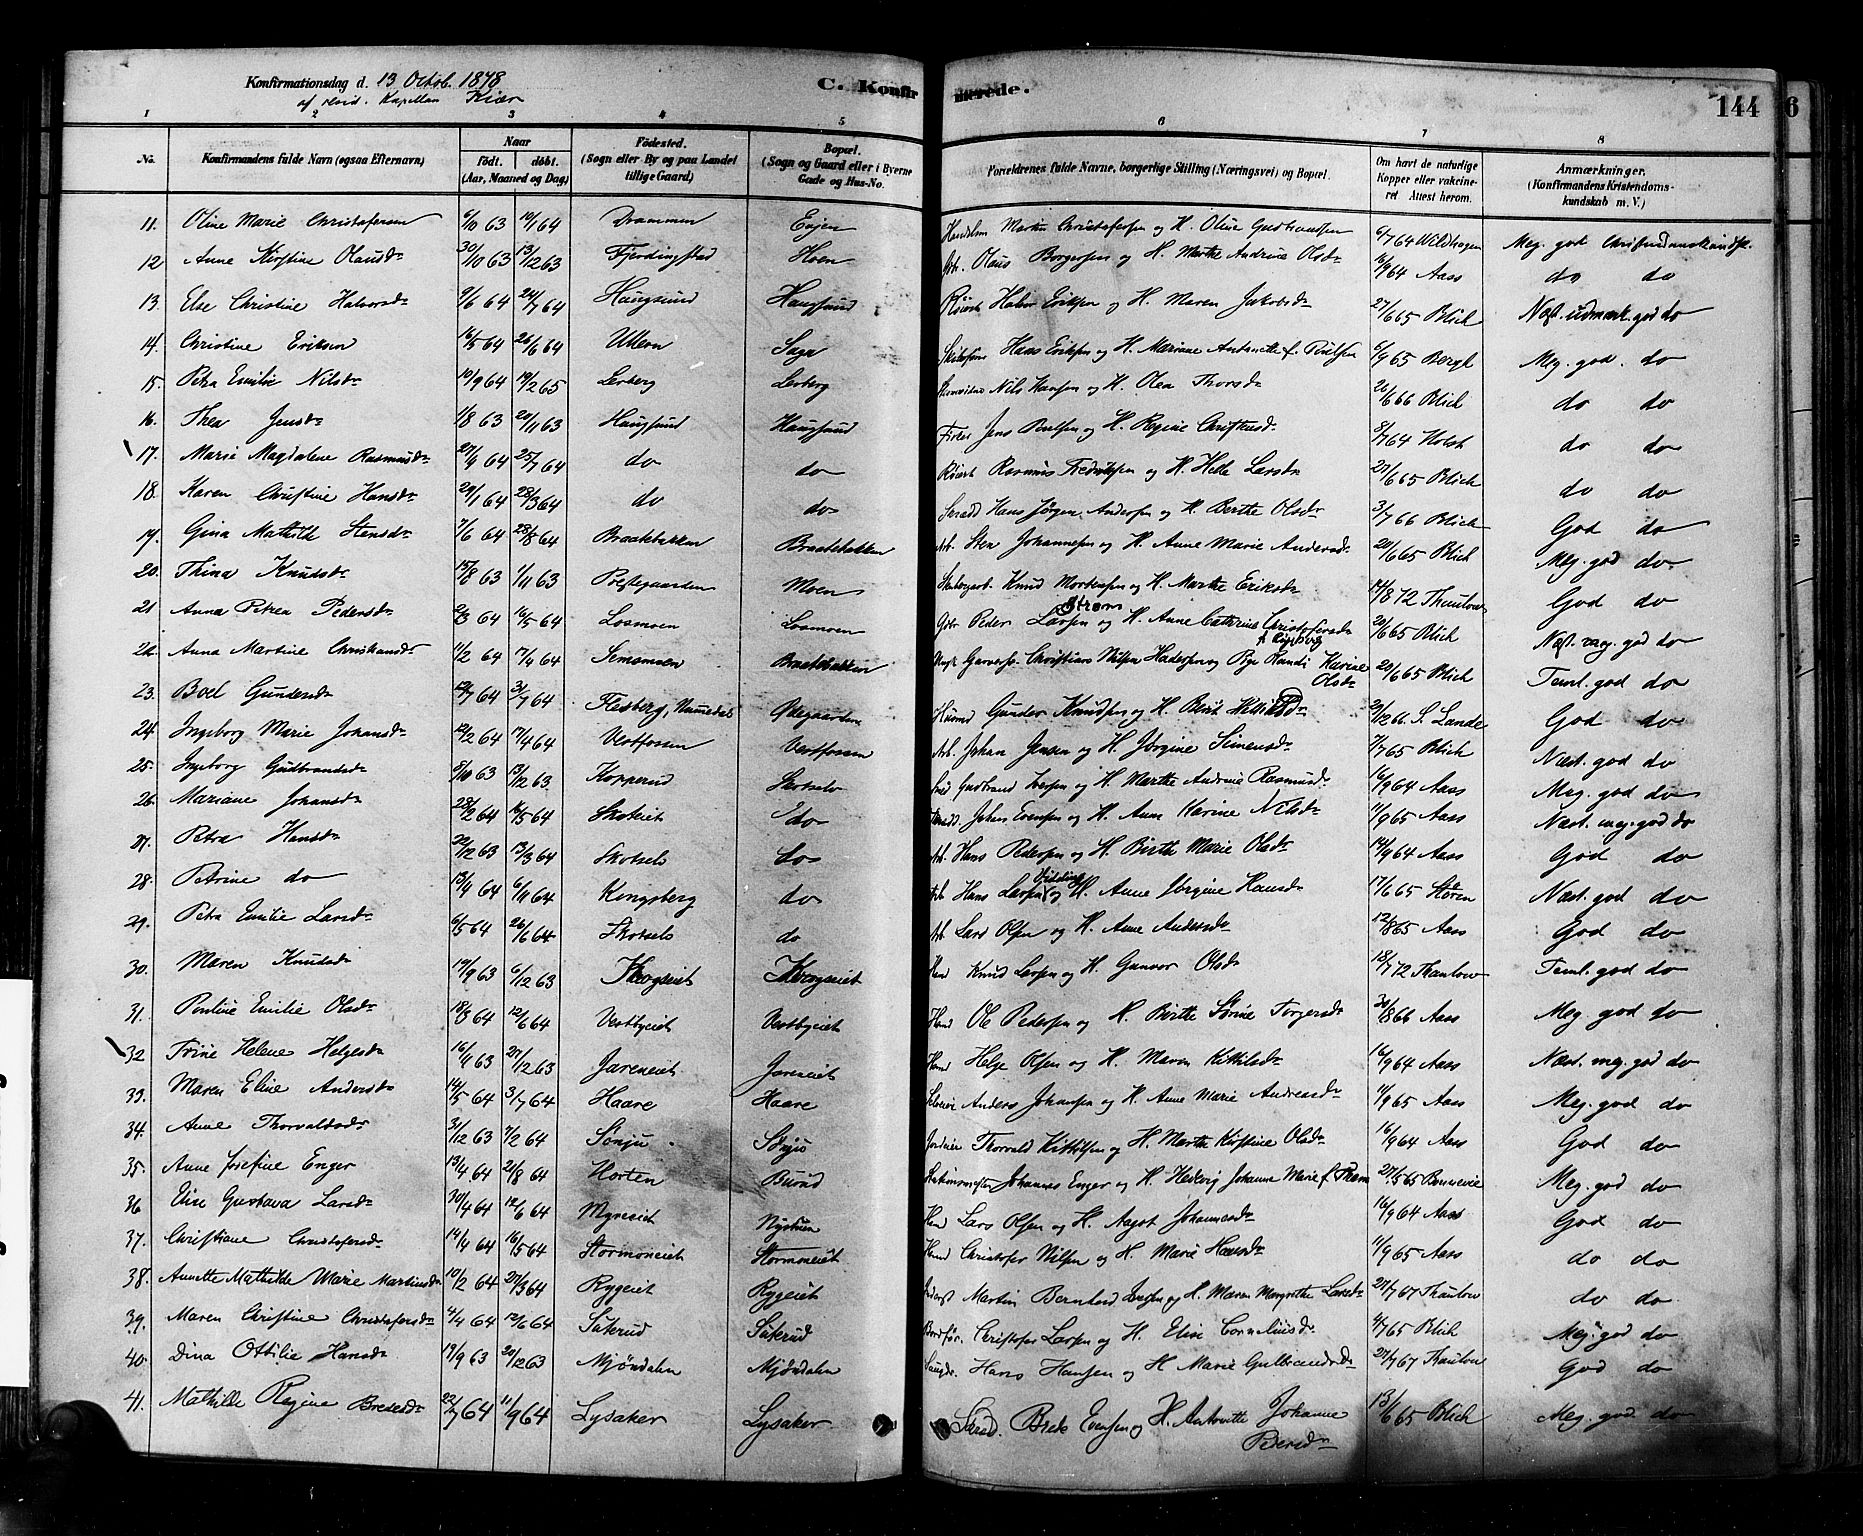 Konfirmationsdag d. 13 Octob. 1878
af resid. Kapellan Kiær
C. Konfirmerede.
144
6
1 2 3 4 5 6 7 8
No. Konfirmandens fulde Navn (ogsaa Efternavn) Naar födt. döbt. (Aar, Maaned og Dag) Födested. (Sogn eller By og paa Landet tillige Gaard) Bopæl. (Sogn og Gaard eller i Byerne Gade og Hus-No. Forældrenes fulde Navne, borgerlige Stilling (Næringsvei) og Bopæl. Om havt de naturlige Kopper eller vakcineret Attest herom. Anmærkninger. (Konfirmandens Kristendomskundskab m. V.)
11. Oline Marie Christofersen 6/10 63 10/1 64 Drammen Engen Martin Christofersen og H. Oline 6/7 64 Wildhagen Meg. god
12 Anne Kirstine Olausdr 30/10 63 13/12 63 Fjerdingstad Hoen Olaus Borgersen og H. Marthe Andrine Olsdr 16/9 64 Aass do do
13. Else Christine Halvorsdr 9/6 64 24/7 64 Haugsund Haugsund Halvor Eriksen og H. Maren Jakobsdr 27/6 65 Blich Næst. udmærk. god do
14. Christine Eriksen 14/5 64 26/6 64 Ullern Saga Hans Eriksen og H. Mariane Antonette f. Poulsen 6/9 65 Bergh Meg. god. do
15. Petra Emilie Nilsdr 10/9 64 19/2 65 Lerberg Lerberg Nils Hansen og H. Olea Thorsdr 20/6 66 Blich do do
16. Thea Jensdr 1/8 63 20/11 63 Haugsund Haugsund Jens Poulsen og H. Regine 8/7 64 Holst do do
17. Marie Magdalene Rasmusdr 27/4 64 25/7 64 do do Rasmus Fredriksen og H. Helle Larsdr 27/6 65 Blich do do
18. Karen Christine Hansdr 29/1 64 28/3 64 do do Hans Jörgen Andersen og H. Berthe Olsdr 3/7 66 Blich God do
19. Gina Mathilde Stensdr 7/6 64 28/8 64 Braatebakken Braatebakken Arb. Sten Johannesen og H. Anne Marie Andersdr 20/6 65 Blich Meg. god do
20. Thina Knudsdr 15/8 63 1/11 63 Præstegaarden Moen Knud Mortensen og H. Marthe Eriksdr 14/8 72 Thaulow God do
21 Anna Petrea Pedersdr 2/3 64 16/5 64 Losmoen Losmoen Peder Larsen Strøm og H. Anne Cathrine Christofersdr 20/6 65 Blich Næst. meg. god do
22. Anna Martine Christiansdr 11/2 64 17/4 64 Semsmoen Braatebakken Christians Nilsen og Pige Randi Karine Olsdr 20/6 65 Blich Teml. god do
23. Boel Gundersdr 12/7 64 31/7 64 Flesberg, Numedal Ødegaarden Gunder Knudsen og H. Berit 21/12 66 S. Lande God do
24. Ingeborg Marie Johansdr 12/2 64 17/4 64 Vestfossen Vestfossen Arb. Johan Jensen og H. Jørgine Simensdr 7/7 65 Blich Næst. god do
25. Ingeborg Gudbrandsdr 8/10 63 13/12 63 Kopperud Skotselv Gudbrand Iversen og H. Marthe Andrine Rasmusdr 16/9 64 Aass Meg. god do
26. Mariane Johansdr 28/2 64 16/5 64 Skoteiet do Johan Evensen og H. Anne Karine Nilsdr 11/9 65 Aass Næst. meg. god do
27. Petra Hansdr 22/12 63 13/3 64 Skotselv do Arb. Hans Pedersen og H. Birthe Marie Olsdr 14/9 64 Aass God do
28. Petrine do 13/4 64 6/11 64 Kongsberg do Arb. Hans Larsen og H. Anne Jørgine Hansdr 17/6 65 Støren Næst. god do
29. Petra Emilie Larsdr 6/5 64 26/6 64 Skotselv do Arb. Lars Olsen og H. Anne Andersdr 12/8 65 Aass God do
30. Maren Knudsdr 19/9 63 6/12 63 Knud Larsen og H. Gunvor Olsdr 18/7 72 Thaulow Teml. god do
31. Pauline Emilie Olsdr 18/3 64 12/6 64 Vestbyeiet Vestbyeiet Ole Pedersen og H. Birthe Sørine Torgersdr 30/8 66 Aass Meg god do
32 Trine Helene Helgesdr 16/9 63 27/12 63 Jareneiet Jareneiet Helge Olsen og H. Maren Kittilsdr 16/9 64 Aass Næst. meg. god do
33. Maren Eline Andersdr 14/5 64 3/7 64 Haare Haare Selveier Anders Johansen og H. Anne Marie Andreasdr 11/9 65 Aass Meg. god do
34. Anne Thorvaldsdr 31/12 63 7/2 64 Sønju Sønju Thorvald Kittilsen og H. Marthe Kirstine Olsdr 16/9 64 Aass God do
35. Anne Josefine Enger 13/4 64 21/8 64 Horten Burud Stationsmester Johannes Enger og H. Hedevig Johanne Marie f. 27/5 65 Bonnevie Meg. god do
36 Elise Gustava Larsdr 30/4 64 12/6 64 Myreeiet Nystuen Lars Olsen og H. Aagot Johannesdr 16/9 64 Aass God do
37. Christiane Christofersdr 14/4 64 16/5 64 Stormoneiet Stormoneiet Christofer Nilsen og H. Marie Hansdr 11/9 65 Aass do do
38. Annette Mathilde Marie Martinsdr 10/2 64 27/3 64 Rygeiet Rygeiet Martin Bernhard Iversen og H. Maren Margrethe Larsdr 27/7 67 Thaulow do do
39. Maren Christine Christofersdr 4/4 64 12/6 64 Saterud Saterud Christofer Larsen og H. Elise Corneliusdr 4/7 65 Blich Meg. god do
40. Dina Ottilie Hansdr 19/9 63 20/12 63 Mjøndalen Mjøndalen Hans Hansen og H. Marie Gulbrandsdr 27/7 67 Thaulow God do
41. Mathilde Regine Bredesdr 22/7 64 11/9 64 Lysaker Lysaker Brede Evensen og H. Antonette Johanne Beresdr 13/6 65 Blich Meg. god. do